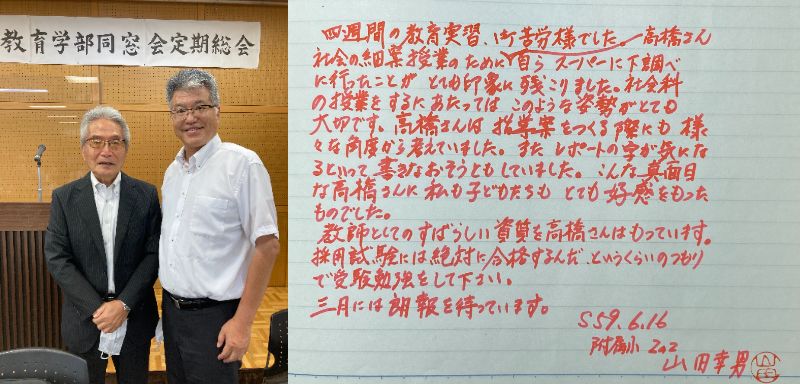 教育学部同窓会定期総会
四週間の教育実習、ご苦労様でした。高橋さん
社会の細案授業のために自らスーパーに下調べ
に行ったことがとても印象に残こりました。社会科
の授業をするにあたってはこのような姿勢がとても
大切です。高橋さんは指導案をつくる際にも様
々な角度から考えていました。また レポートの字が気にな
るといって書きなおそうともしていました。こんな真面目
な高橋さんに私も子どもたちもとても好感をもった
ものでした。
教師としてのすばらしい資質を高橋さんはもっています。
採用試験には絶対に合格するんだ、というくらいのつもり
で受験勉強をして下さい。
三月には朗報を待っています。
S59.6.16
附属小 2の2
山田幸男